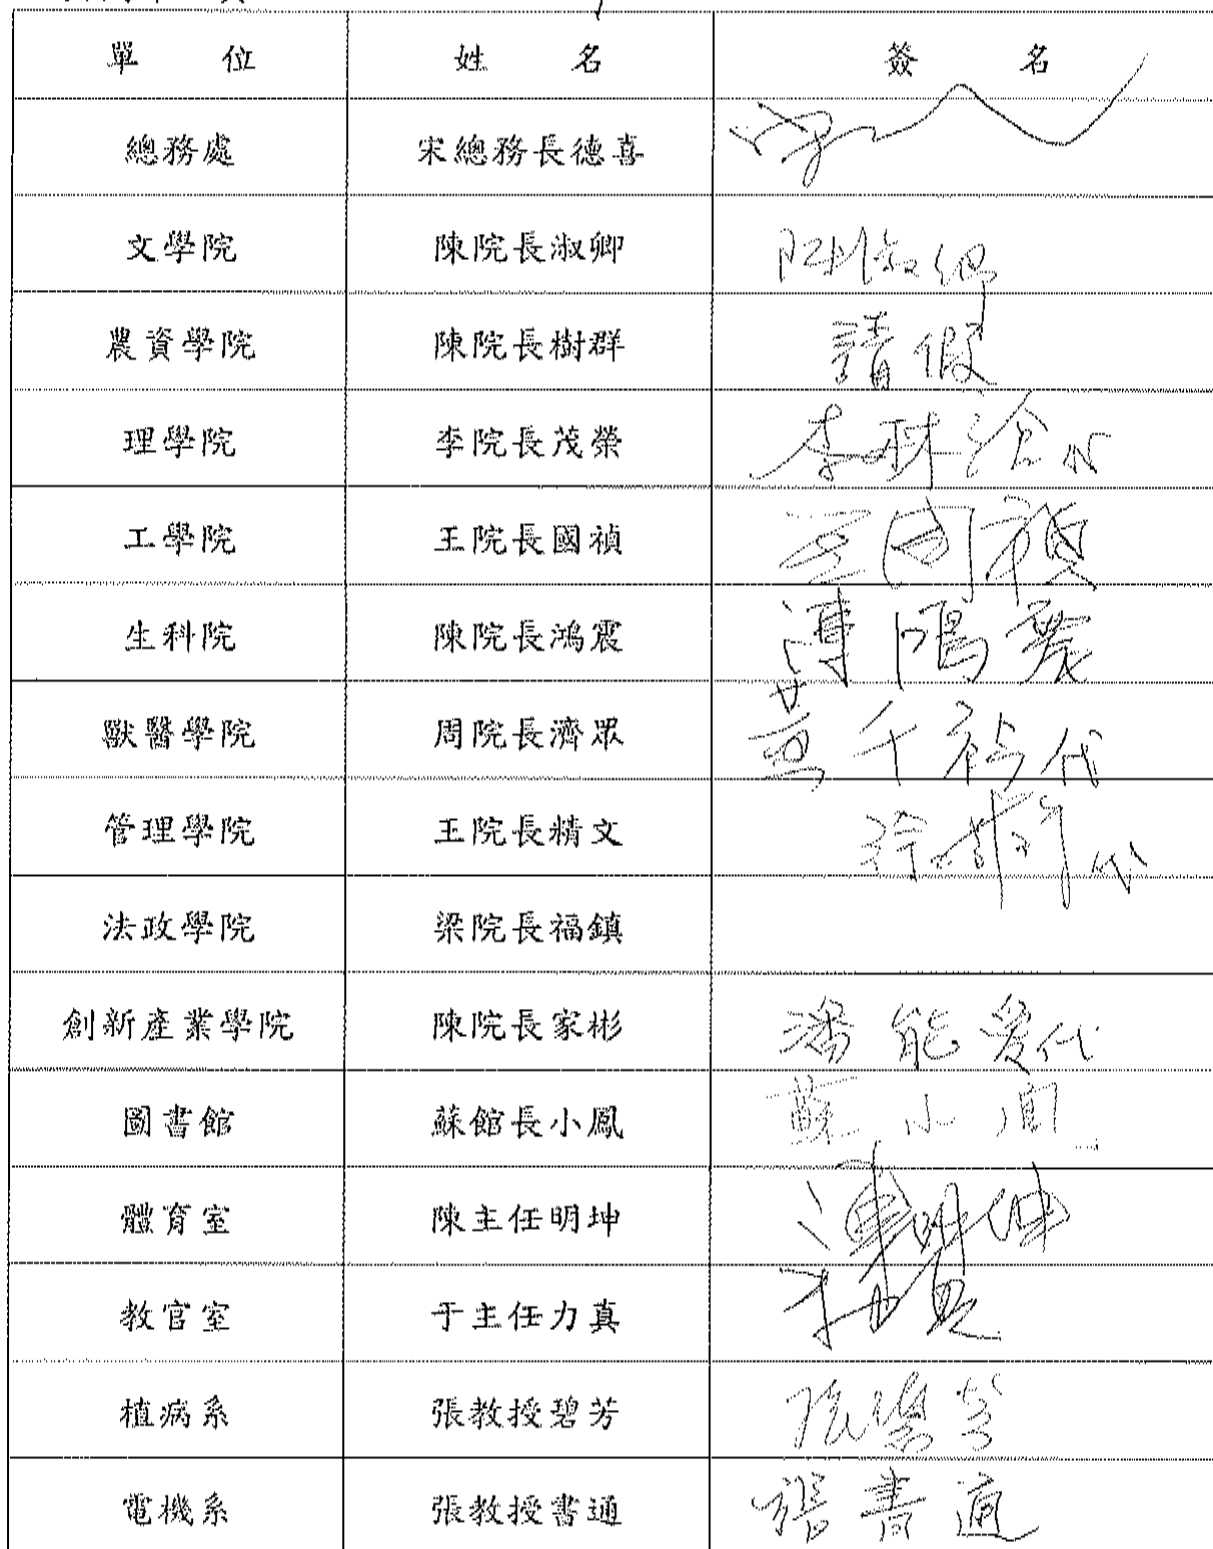 單位 姓名 簽名
總務處 宋總務長德喜
文學院 陳院長淑卿 陳淑卿
農資學院 陳院長樹群 請假
理學院 李院長茂榮 李 代
工學院 王院長國禎 王國禎
生科院 陳院長鴻震 陳鴻震
獸醫學院 周院長濟眾 千 代
管理學院 王院長精文 代
法政學院 梁院長福鎮
創新產業學院 陳院長家彬 潘能 代
圖書館 蘇館長小鳳 蘇小鳳
體育室 陳主任明坤 陳明坤
教官室 于主任力真
植病系 張教授碧芳 張碧芳
電機系 張教授書通 張書通